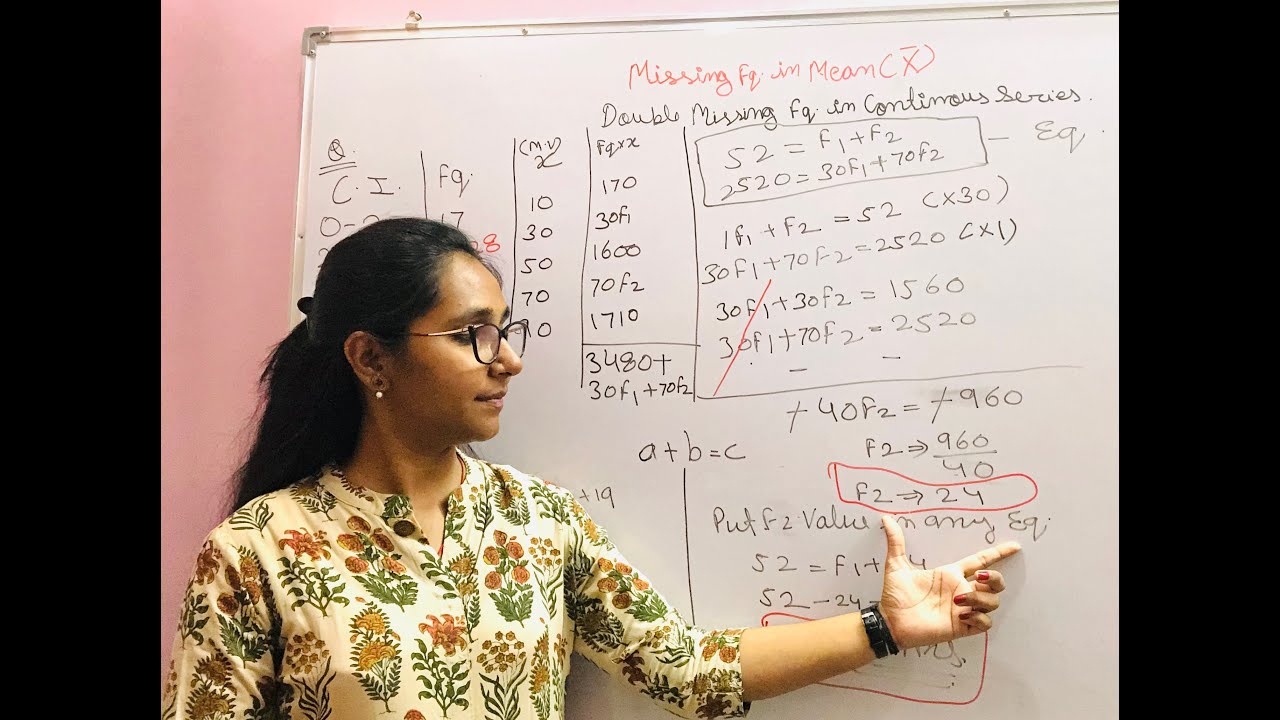 Missing Fq. in Mean (X̄)
Double Missing Fq. in Continous Series.
Q.
C.I. Fq. (M.V) x Fq×x
0-2 17 10 170
28 30 30f1
50 1600
70 70f2
1710
3480+
30f1+70f2
52 = f1+f2 — Eq.
2520 = 30f1+70f2
1f1+f2 = 52 (×30)
30f1+70f2 = 2520 (×1)
30f1+30f2 = 1560
30f1+70f2 = 2520
– –
-40f2 = -960
f2 ⇒ 960/40
f2 ⇒ 24
a+b=c
+19
Put f2 Value in any Eq.
52 = f1+ 4
52 - 24